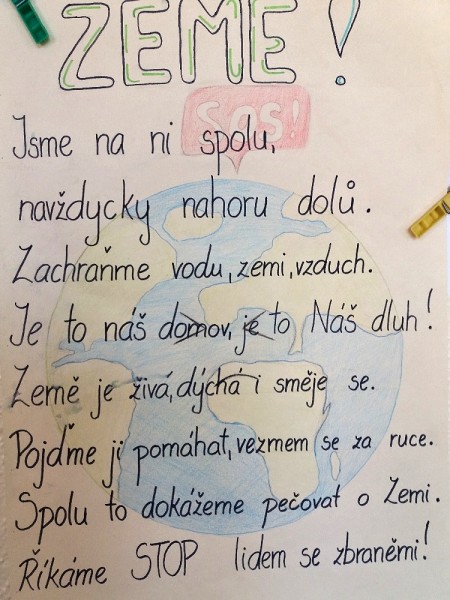 ZEMĚ!
SOS!
Jsme na ni spolu,
navždycky nahoru dolů.
Zachraňme vodu, zemi, vzduch.
Je to náš domov, je to Náš dluh!
Země je živá, dýchá i směje se.
Pojďme ji pomáhat, vezmem se za ruce.
Spolu to dokážeme pečovat o Zemi.
Říkáme STOP lidem se zbraněmi!